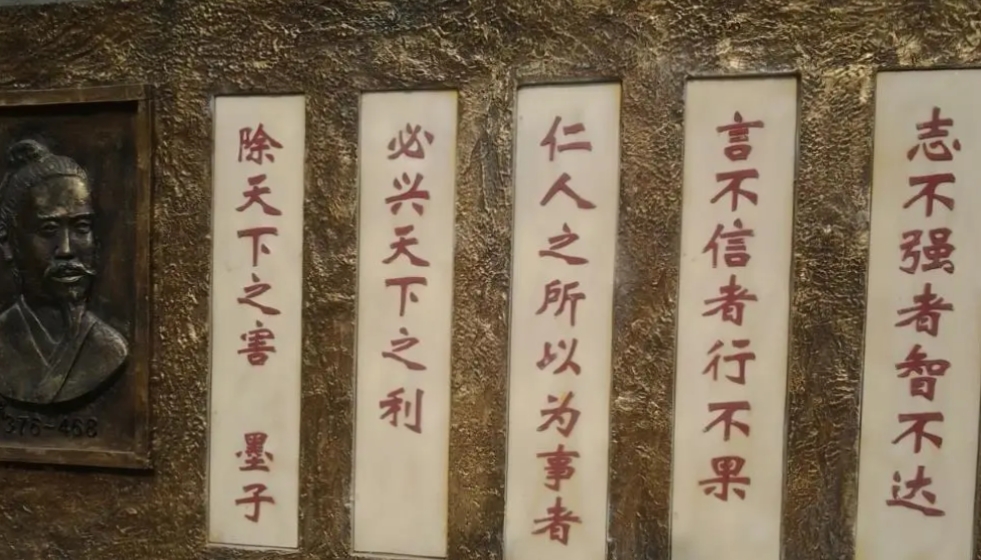 志不强者智不达
言不信者行不果
仁人之所以为事者
必兴天下之利
除天下之害 墨子
376-468